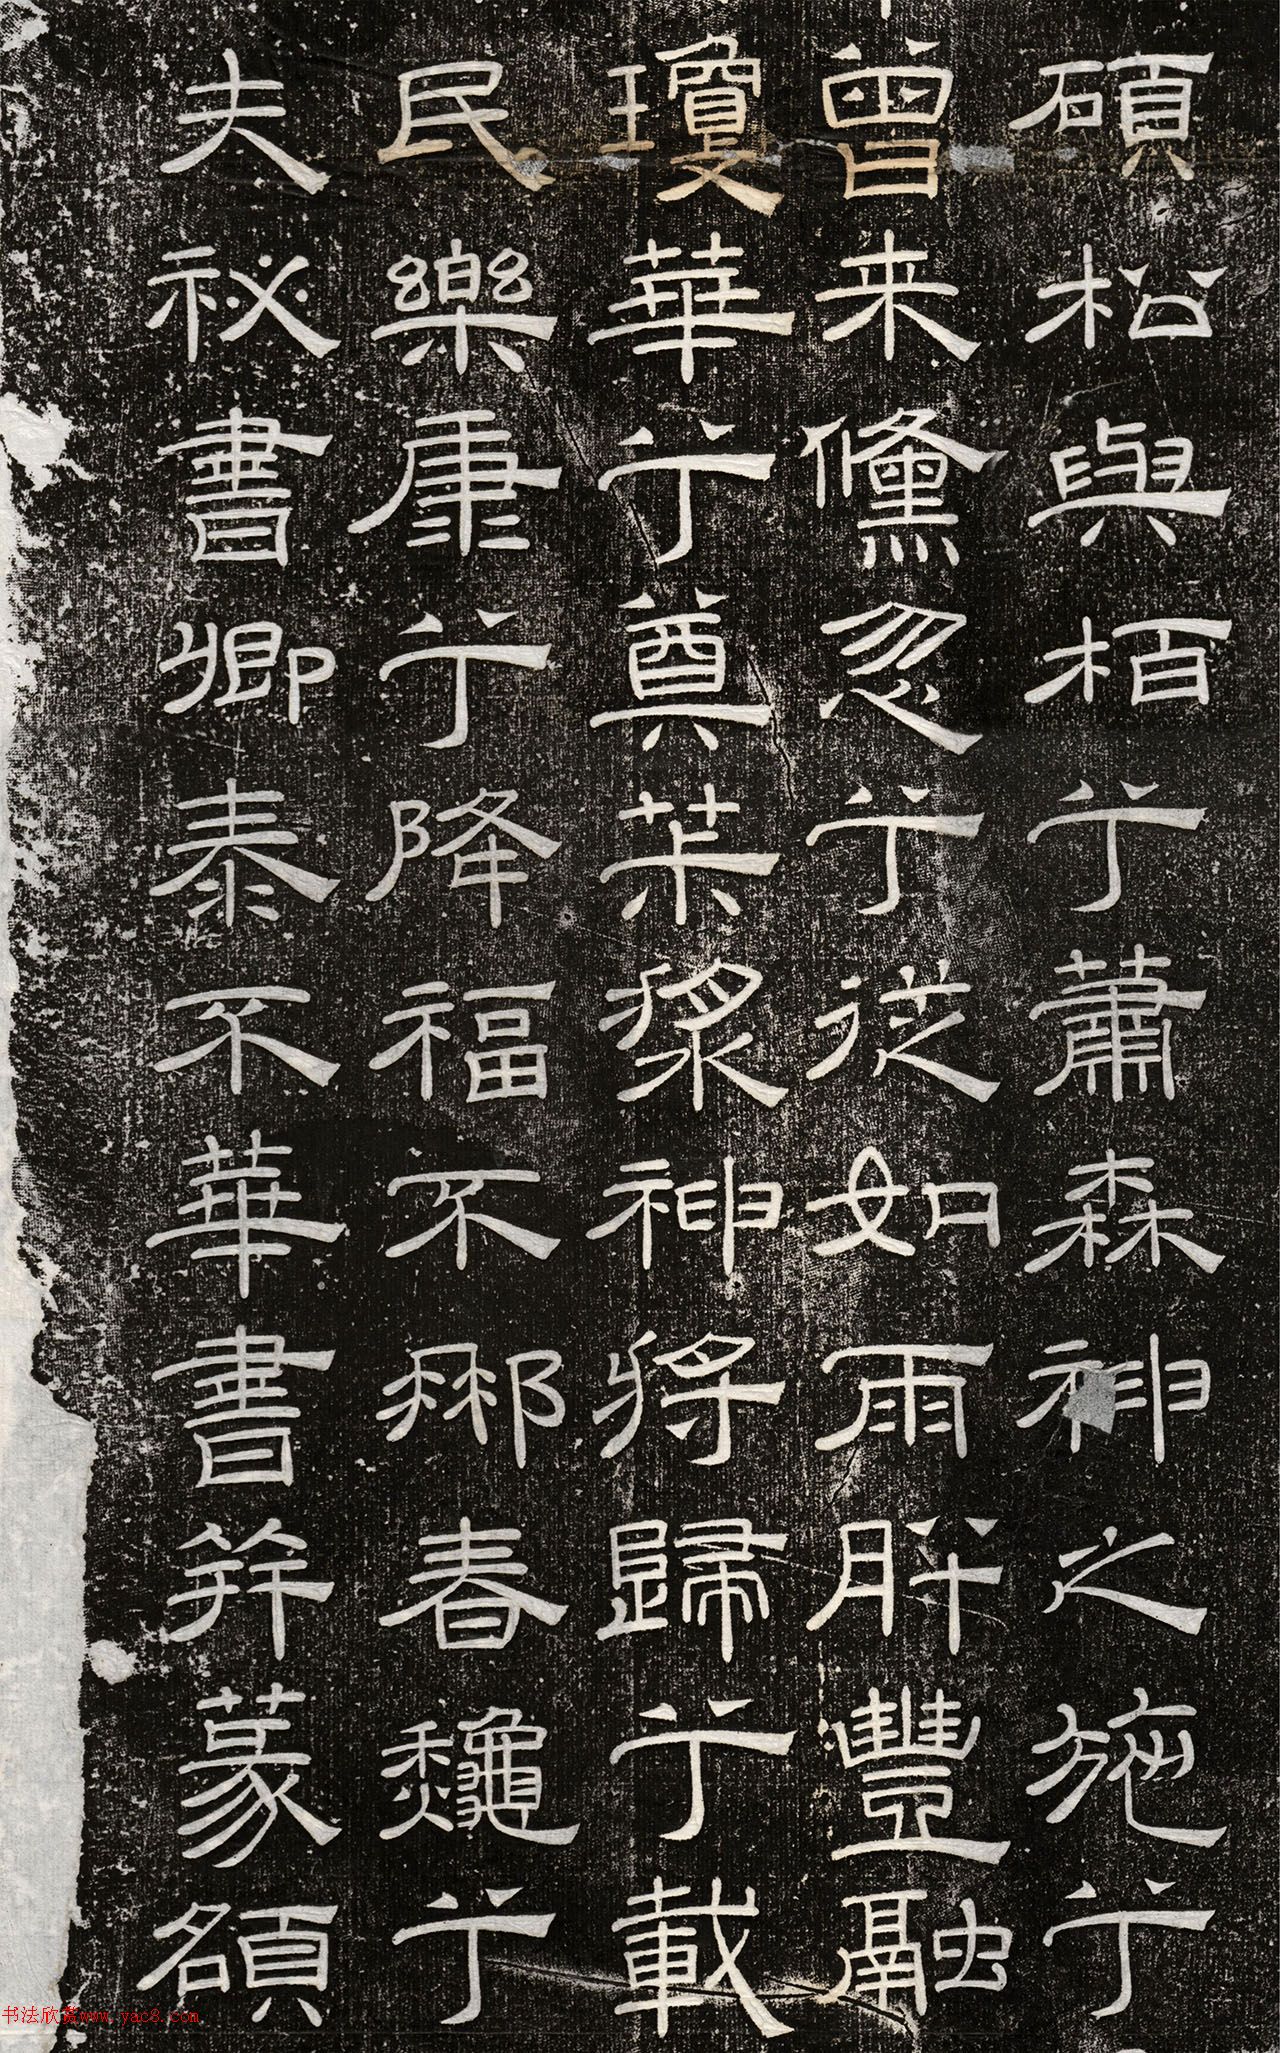 碩松與栢兮蕭森神之施兮
曾来儵忽兮從如雨肸豐融
瓊華兮奠桨神將歸兮載
民樂康兮降福不𨚗春龝兮
夫祕書卿泰不華書并篆額
书法欣赏www.yac8.com